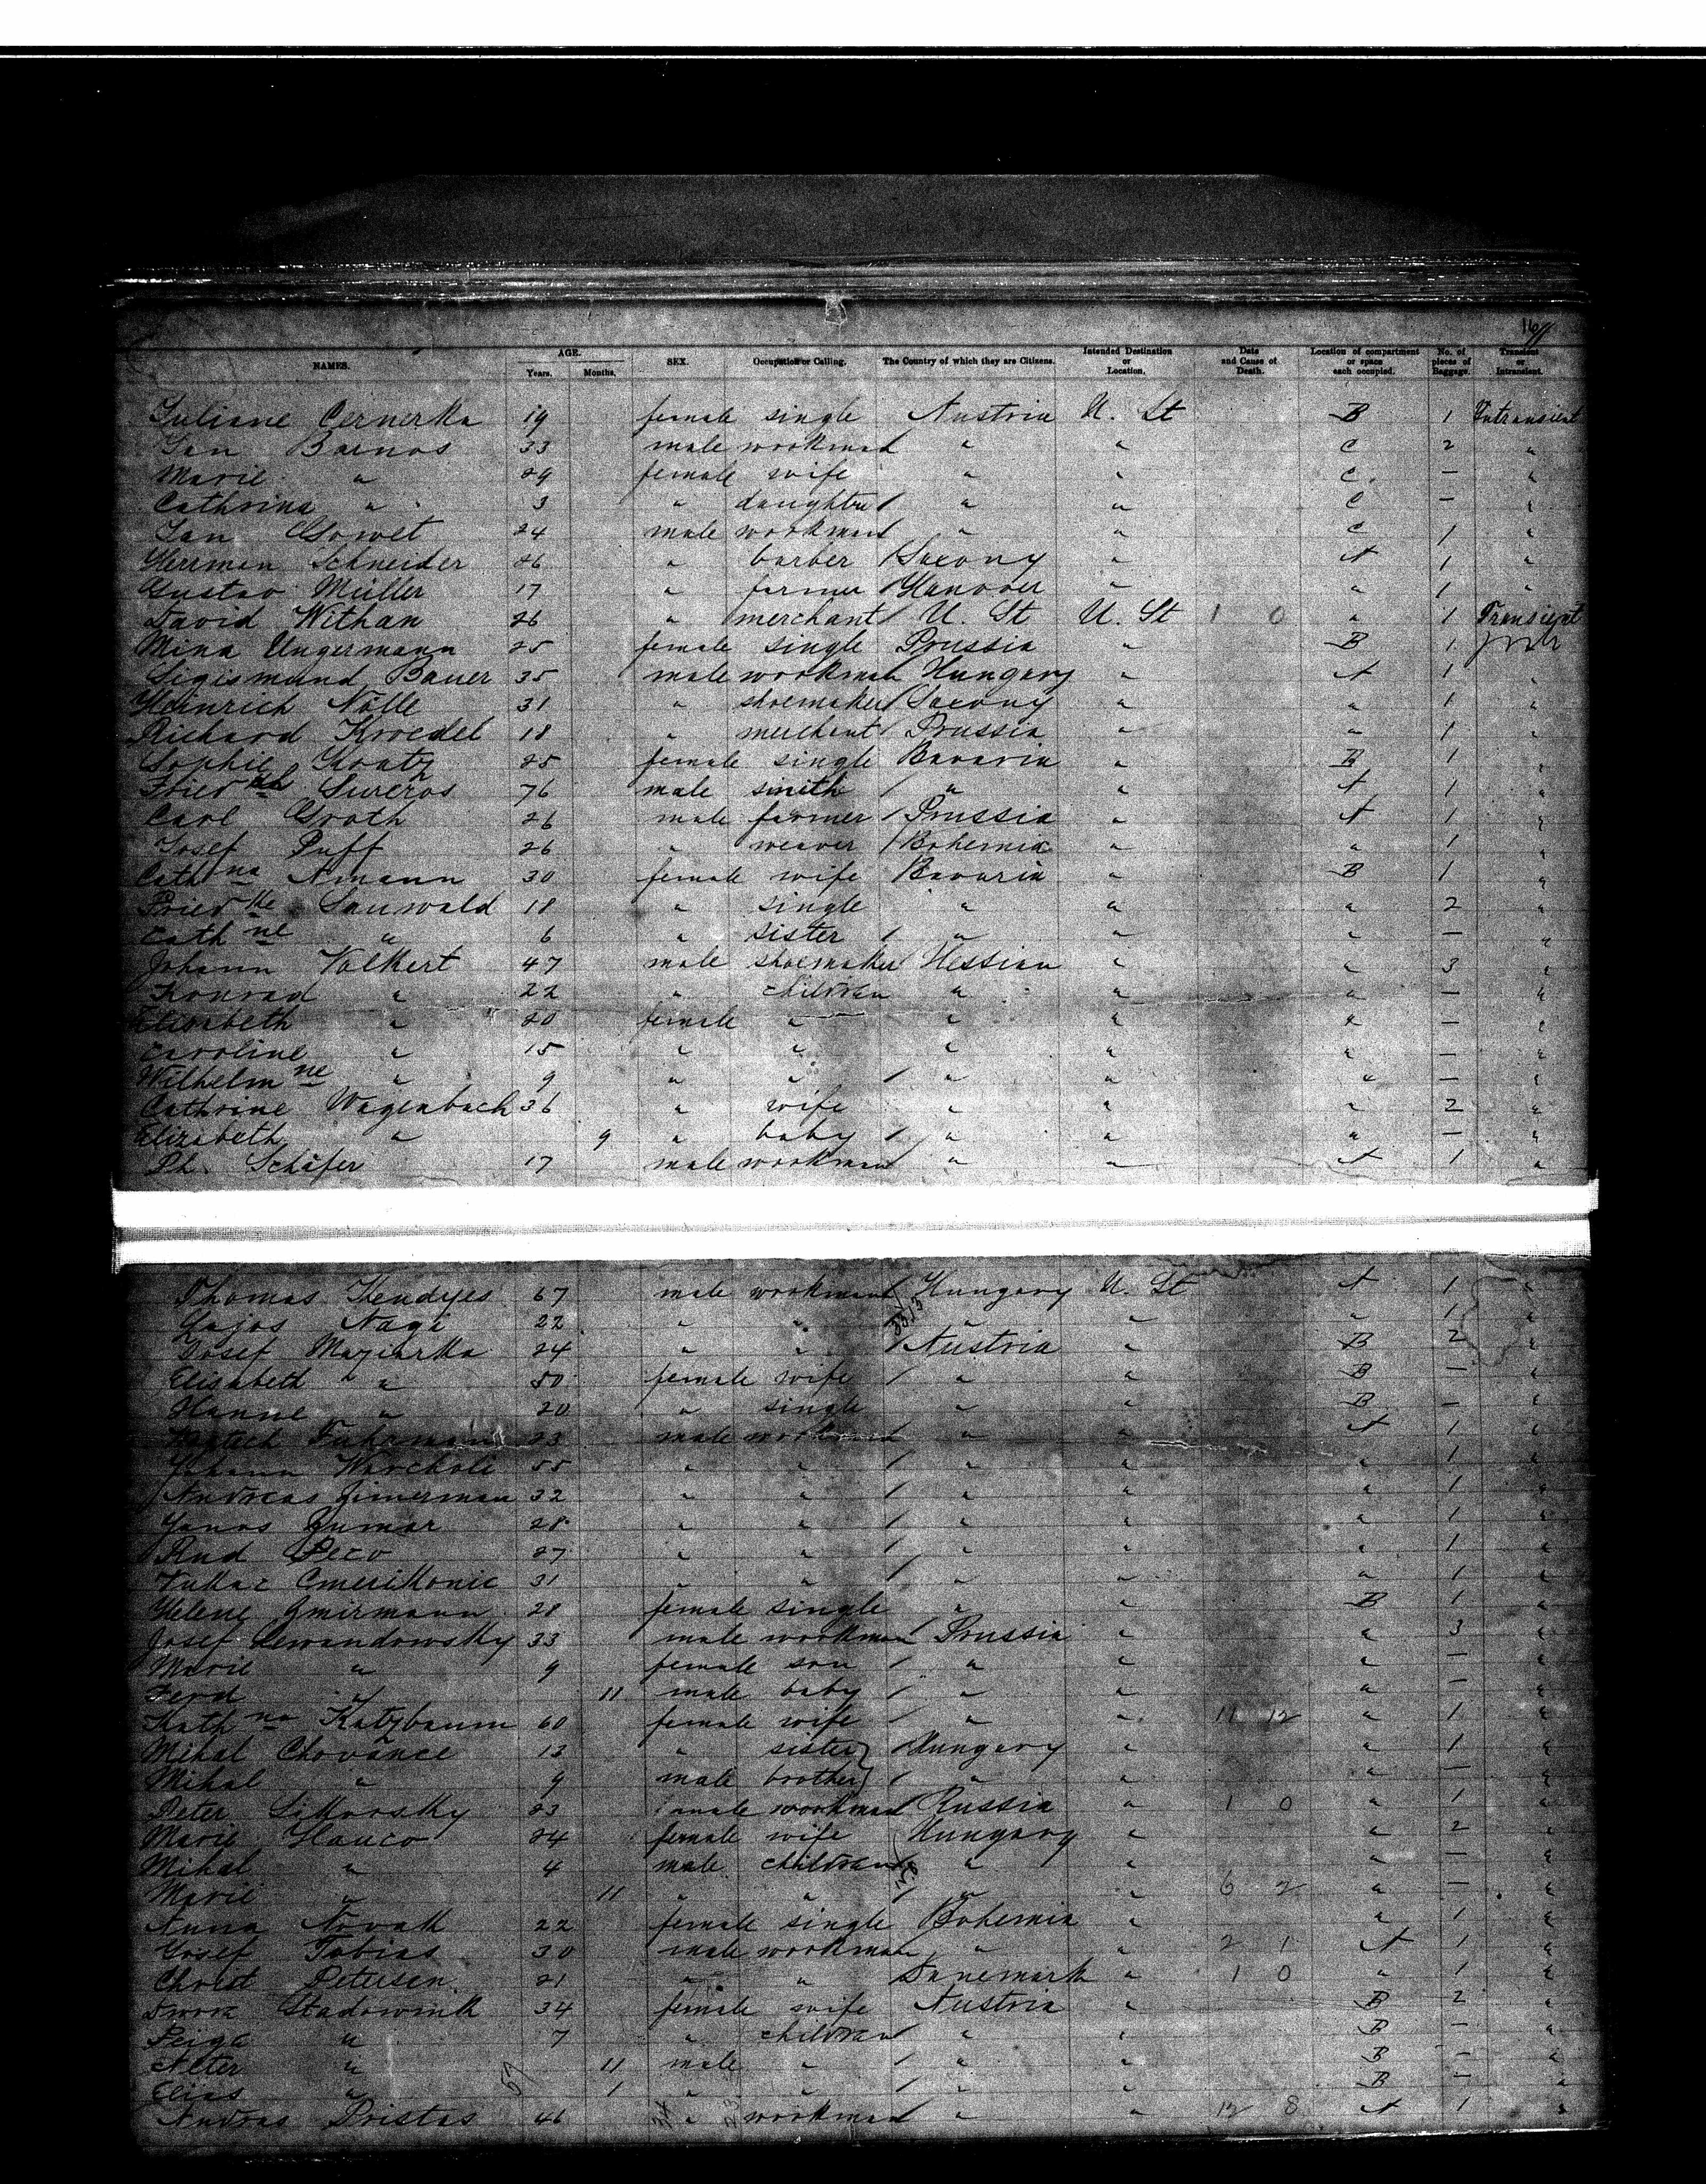 16
NAMES. AGE. Years. Months. SEX. Occupation or Calling. The Country of which they are Citizens. Intended Destination or Location. Date and Cause of Death. Location of compartment or space each occupied. No. of pieces of Baggage. Transient or Intransient.
Juliane Cernerka 19 female single Austria U. St B 1 Intransient
Jan Barnos 33 male workman " " C 2 "
Marie " 29 female wife " " C. — "
Cathrina " 3 " daughter " " C — "
Jan Gowet 24 male workman " " C 1 "
Herrman Schneider 26 " barber Saxony " A 1 "
Gustav Müller 17 " farmer Hanover " " 1 "
David Withan 26 " merchant U. St U. St 1 0 " 1 Transient
Mina Ungermann 25 female single Prussia " B 1
Sigismund Bauer 35 male workman Hungary " A 1 "
Heinrich Nölle 31 " shoemaker Saxony " " 1 "
Richard Kroedel 18 " merchant Prussia " " 1 "
Sophie 25 female single Bavaria " B 1 "
76 male smith " " A 1 "
Carl Groth 26 male farmer Prussia " A 1 "
Josef Puff 26 " weaver Bohemia " " 1 "
Cathna Amann 30 female wife Bavaria " B 1 "
Friedke Sauwald 18 " single " " " 2 "
Cathne " 6 " sister " " " — "
Johann Volkert 47 male shoemaker Hessian " " 3 "
Konrad " 22 " children " " " — "
Elisabeth " 20 female " " " " — "
Caroline " 15 " " " " " — "
Wilhelmne " 9 " " " " " — "
Cathrine Wagenbach 36 " wife " " " 2 "
Elizabeth " 9 " baby " " " — "
Ph. Schäfer 17 male workman " " A 1 "
Thomas Kendyes 67 male workman Hungary U. St A 1 "
Lajos Nagi 22 " " " " " 1 "
Josef Maziarka 24 " " Austria " B 2 "
Elisabeth " 50 female wife " " B — "
Hanne " 20 " single " " B — "
23 male workman " " A 1 "
Johann Warcholi 55 " " " " " 1 "
Andreas Zimerman 32 " " " " " 1 "
Janos Gumar 28 " " " " " 1 "
Rud Peco 27 " " " " " 1 "
31 " " " " " 1 "
Helene Zmirmann 28 female single " " B 1 "
Josef Lewandowsky 33 male workman Prussia " " 3 "
Marie " 9 female son " " " — "
Ferd " 11 male baby " " " — "
Kathna Katzbaum 60 female wife " " 11 12 " 1 "
Mihal Chovance 13 " sister Hungary " " 1 "
Mihal " 9 male brother " " " — "
Peter Sikorsky 23 male workman Russia " 1 0 " 1 "
Marie Hanco 24 female wife Hungary " " 2 "
Mihal " 4 male children " " " — "
Marie " 11 " " " " 6 2 " — "
Anna Novak 22 female single Bohemia " " 1 "
Josef Tobias 30 male workman " " 2 1 A 1 "
Christ Petersen 21 " " Danemark " 1 0 " 1 "
Stadowink 34 female wife Austria " B 2 "
Feiga " 7 " children " " B — "
Alter " 11 male " " " B — "
Elias " 1 " " " " B — "
Andras Pristas 46 " workman " " 12 8 A 1 "